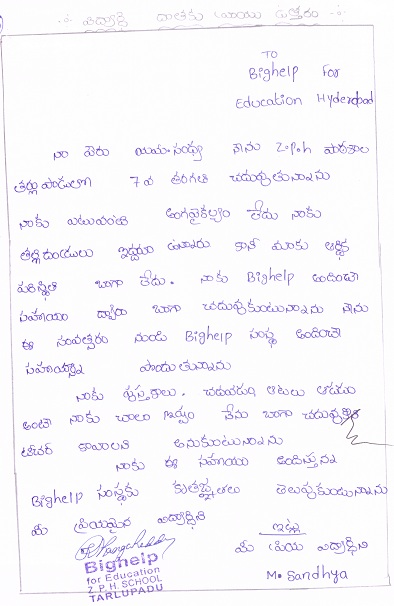 విద్యార్థి దాతకు వ్రాయు ఉత్తరం
TO
Bighelp For
Education Hyderabad
నా పేరు యమ.సంధ్య నేను Z.P.h పాఠశాల
తర్లుపాడులో 7వ తరగతి చదువుతున్నాను
నాకు ఎటువంటి అంగవైకల్యం లేదు నాకు
తల్లిదండ్రులు ఇద్దరూ ఉన్నారు కానీ మాకు ఆర్థిక
పరిస్థితి బాగా లేదు. నాకు Bighelp అందించే
సహాయం ద్వారా బాగా చదువుకుంటున్నాను నేను
ఈ సంవత్సరం నుండి Bighelp సంస్థ అందించే
సహాయాన్ని పొందుతున్నాను
నాకు పుస్తకాలు. చదవడం, ఆటలు ఆడడం
అంటే నాకు చాలా ఇష్టం నేను బాగా
టీచర్ కావాలని అనుకుంటున్నాను
నాకు ఈ సహాయం అందిస్తున్న
Bighelp సంస్థకు కృతజ్ఞతలు తెలుపుకుంటున్నాను
మీ ప్రియమైన విద్యార్థిని
ఇట్లు
మీ ప్రియ విద్యార్థిని
M. Sandhya
Bighelp
for Education
Z P H SCHOOL
TARLUPADU